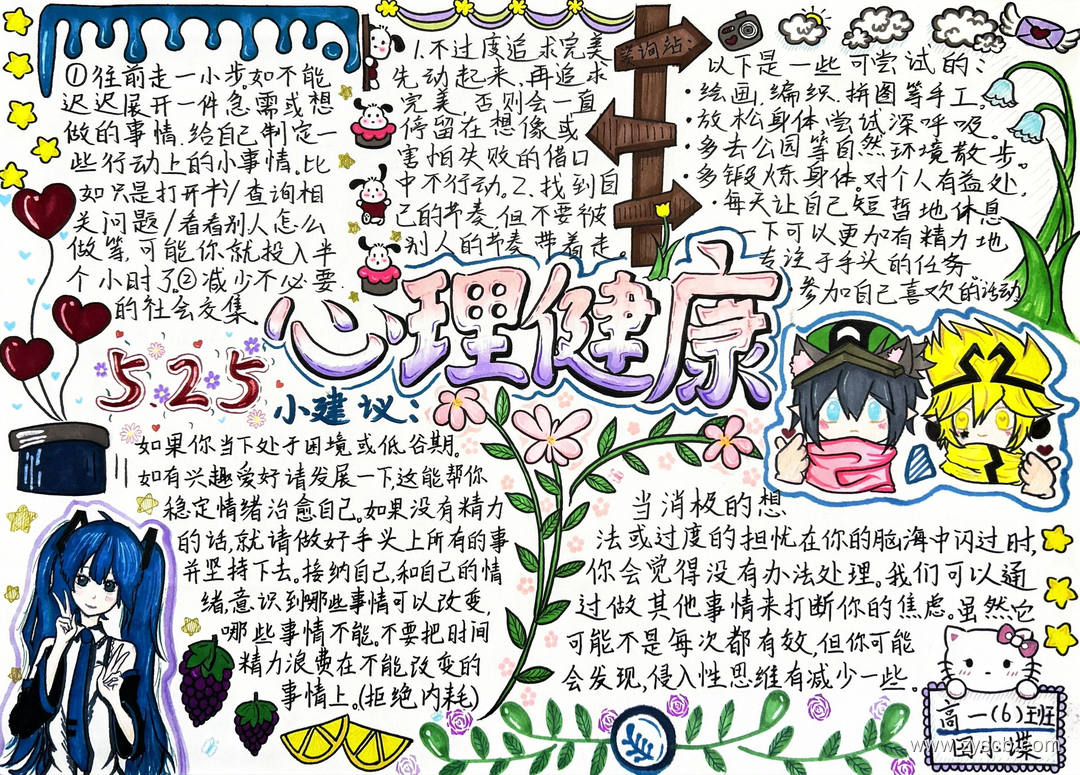 ①往前走一小步。如不能
迟迟展开一件急需或想
做的事情.给自己制定一
些行动上的小事情。比
如只是打开书/查询相
关问题/看看别人怎么
做等,可能你就投入半
个小时了。②减少不必要
的社会交集
1.不过度追求完美
先动起来,再追求
完美,否则会一直
停留在想像或
害怕失败的借口
中不行动。2.找到自
己的节奏,但不要被
别人的节奏带着走。
咨询站:
以下是一些可尝试的:
·绘画.编织.拼图等手工。
·放松身体,尝试深呼吸。
·多去公园等自然环境散步。
·多锻炼身体。对个人有益处,
·每天让自己短暂地休息
一下可以更加有精力地
专注于手头的任务
参加自己喜欢的活动
心理健康
5.25
小建议:
如果你当下处于困境或低谷期。
如有兴趣爱好请发展一下,这能帮你
稳定情绪治愈自己。如果没有精力
的话,就请做好手头上所有的事
并坚持下去。接纳自己,和自己的情
绪,意识到哪些事情可以改变,
哪些事情不能。不要把时间
精力浪费在不能改变的
事情上。(拒绝内耗)
当消极的想
法或过度的担忧在你的脑海中闪过时,
你会觉得没有办法处理。我们可以通
过做其他事情来打断你的焦虑。虽然它
可能不是每次都有效,但你可能
会发现,侵入性思维有减少一些。
高一(6)班